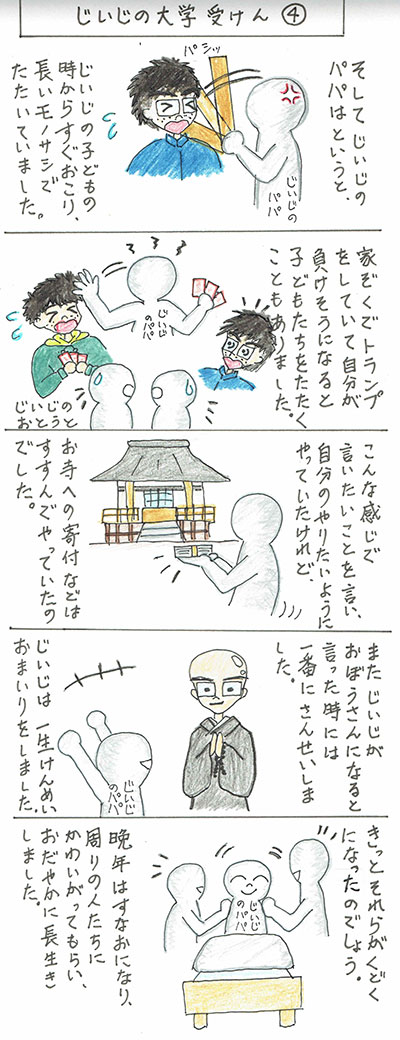 じいじの大学受けん④
そして じいじの
パパは というと、
パシッ
じいじの
パパ
じいじの子どもの
時からすぐおこり、
長いモノサシで
たたいていました。
家ぞくでトランプ
をしていて自分が
負けそうになると
子どもたちをたたく
こともありました。
じいじ
のパパ
じいじの
おとうと
こんな感じで
言いたいことを言い、
自分のやりたいように
やっていたけれど、
お寺への寄付などは
すすんでやっていたの
でした。
また じいじが
おぼうさんになると
言った時には
一番にさんせいしま
した。
じいじ
のパパ
じいじは 一生けんめい
おまいりをしました。
きっと それらがくどく
になったのでしょう。
じいじ
のパパ
晩年はすなおになり、
周りの人たちに
かわいがってもらい、
おだやかに長生き
しました。